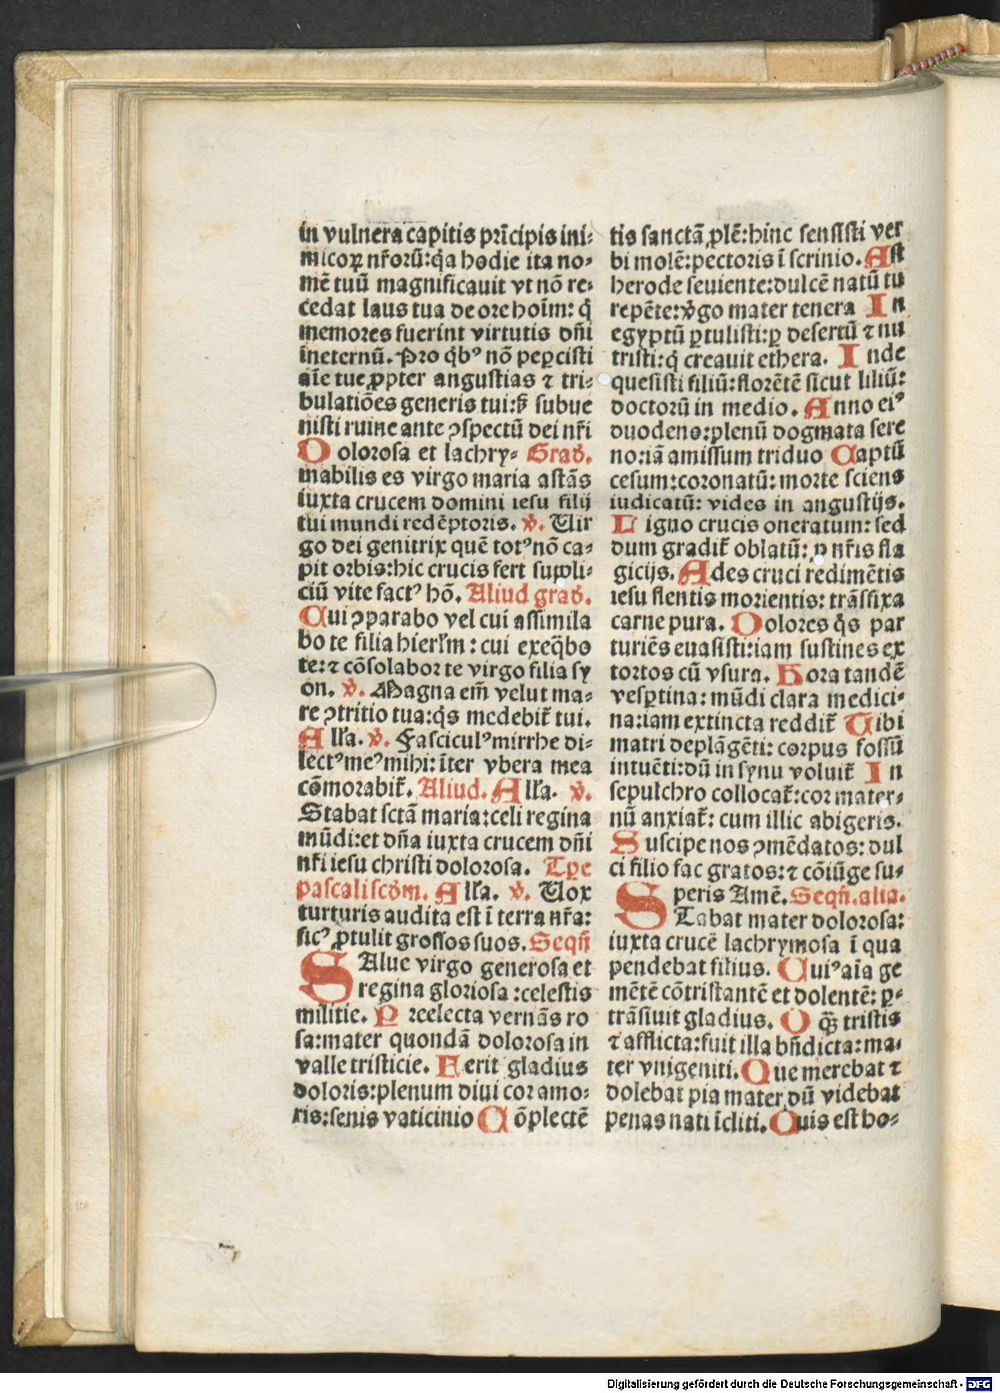 in vulnera capitis prĩcipis ini⸗
micoꝝ nr̃orũ: q̃a hodie ita no⸗
mẽ tuũ magnificauit vt nõ re⸗
cedat laus tua de ore hoĩm: q̃
memores fuerint virtutis dñi
ineternũ. Pro qͥbꝰ nõ peꝑcisti
aĩe tue ꝓpter angustias ⁊ tri⸗
bulatiões generis tui: sꝫ subue
nisti ruine ante ꝯspectũ dei nr̃i
Dolorosa et lachry⸗ Grad.
mabilis es virgo maria astãs
iuxta crucem domini iesu filij
tui mundi redẽptoris. v̈. Vir
go dei genitrix quẽ totꝰ nõ ca⸗
pit orbis: hic crucis fert suppli⸗
ciũ vite factꝰ hõ. Aliud grad.
Cui ꝯparabo vel cui assimila
bo te filia hierl̃m: cui exeq̃bo
te: ⁊ cõsolabor te virgo filia sy
on. v̈. Magna em̃ velut ma⸗
re ꝯtritio tua: q̃s medebit̃ tui.
All̃a. v̈. Fasciculꝰ mirrhe di⸗
lectꝰ meꝰ mihi: ĩter vbera mea
cõmorabit̃. Aliud. All̃a. v̈.
Stabat sctã maria: celi regina
mũdi: et dña iuxta crucem dñi
nr̃i iesu christi dolorosa. Tp̃e
pascali scd̃m. All̃a. v̈. Vox
turturis audita est ĩ terra nr̃a:
ficꝰ ꝓtulit grossos suos. Seqñ
SAlue virgo generosa et
regina gloriosa: celestis
militie. Preelecta vernãs ro
sa: mater quondã dolorosa in
valle tristicie. Ferit gladius
doloris: plenum diui cor amo⸗
ris: senis vaticinio Cõplectẽ
tis sanctã ꝓlẽ: hinc sensisti ver
bi molẽ: pectoris ĩ scrinio. Ast
herode seuiente: dulcẽ natũ tu
repẽte: v̈go mater tenera In
egyptũ ꝑtulisti: ꝑ desertũ ⁊ nu
tristi: q̃ creauit ethera. Inde
quesisti filiũ: florẽtẽ sicut liliũ:
doctorũ in medio. Anno eiꝰ
duodeno: plenũ dogmata sere
no: iã amissum triduo Captũ
cesum: coronatũ: morte sciens
iudicatũ: vides in angustijs.
Ligno crucis oneratum: sed
dum gradit̃ oblatũ: ꝓ nr̃is fla
gicijs. Ades cruci redimẽtis
iesu flentis morientis: trãsfixa
carne pura. Dolores q̃s par
turiẽs euasisti: iam sustines ex
tortos cũ vsura. Hora tandẽ
vesꝑtina: mũdi clara medici⸗
na: iam extincta reddit̃ Tibi
matri deplãgẽti: corpus fossũ
intuẽti: dũ in synu voluit̃ In
sepulchro collocat̃: cor mater⸗
nũ anxiat̃: cum illic abigeris.
Suscipe nos ꝯmẽdatos: dul
ci filio fac gratos: ⁊ cõiũge su⸗
peris Amẽ. Seqñ. alia.
STabat mater dolorosa:
iuxta crucẽ lachrymosa ĩ qua
pendebat filius. Cuiꝰ aĩa ge
mẽtẽ cõtristantẽ et dolentẽ: ꝑ⸗
trãsiuit gladius. O q̃ȝ tristis
⁊ afflicta: fuit illa bñdicta: ma⸗
ter vnigeniti. Que merebat ⁊
dolebat pia mater dũ videbat
penas nati ĩcliti. Quis est ho⸗
Digitalisierung gefördert durch die Deutsche Forschungsgemeinschaft - DFG